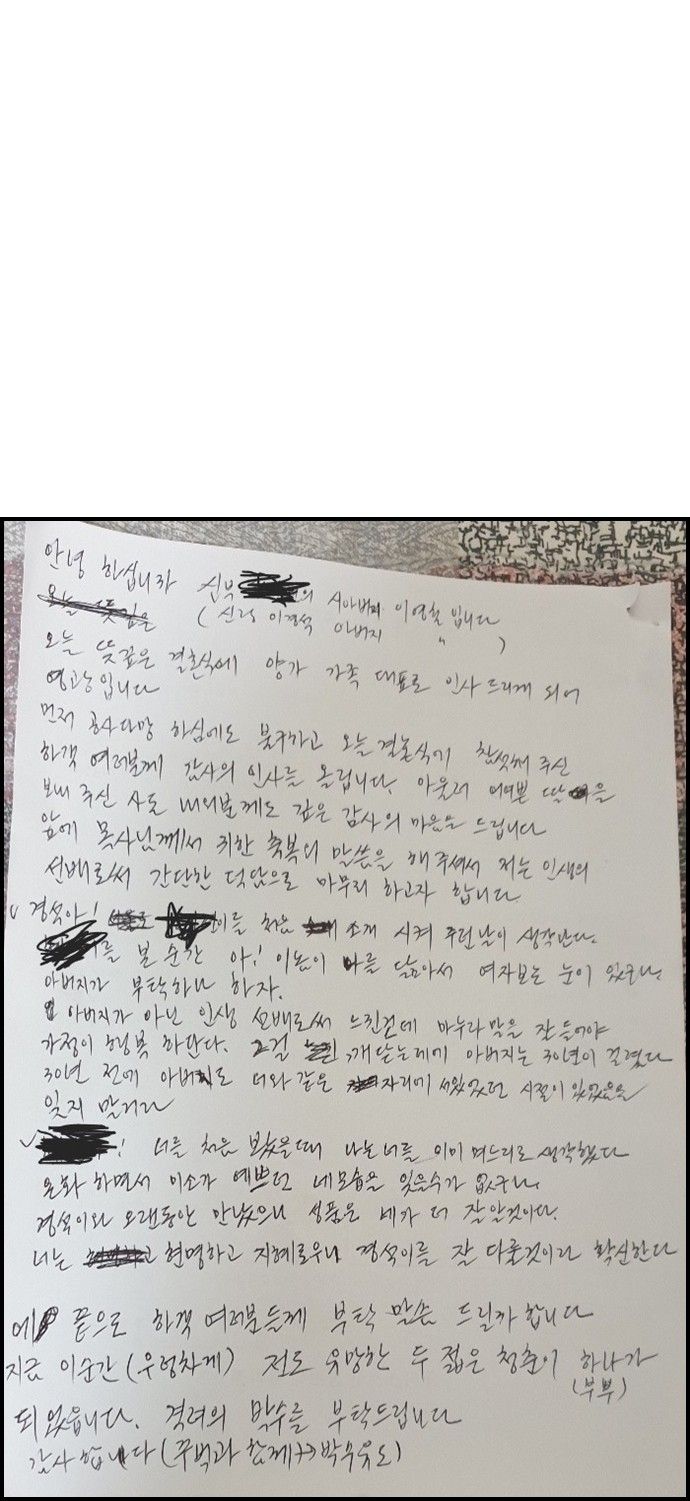 안녕 하십니까 신부 의 시아버지 이영철 입니다
오늘 뜻깊은 (신랑 이경석 아버지 〃 )
오늘 뜻깊은 결혼식에 양가 가족 대표로 인사드리게 되어
영광입니다
먼저 공사다망 하심에도 불구하고 오늘 결혼식에 참석해 주신
하객 여러분께 감사의 인사를 올립니다. 아울러 어여쁜 딸을
보내 주신 사돈 내외분께도 깊은 감사의 마음을 드립니다
앞에 목사님께서 귀한 축복의 말씀을 해 주셔서 저는 인생의
선배로써 간단한 덧말으로 마무리 하고자 합니다
경석아! 이를 처음 소개 시켜 주던날이 생각난다.
이를 본 순간 아! 이놈이 나를 닮아서 여자보는 눈이 있구나.
아버지가 부탁하나 하자.
아버지가 아닌 인생 선배로써 느낀건데 마누라말을 잘 들어야
가정이 행복 하단다. 그걸 깨닫는데에 아버지는 30년이 걸렸다
30년 전에 아버지도 너와 같은 자리에 서있었던 시절이 있었음을
잊지 말거라
! 너를 처음 보았을때 나는 너를 이미 며느리로 생각했다
온화 하면서 미소가 예쁘던 네모습을 잊을수가 없구나.
경석이와 오랜동안 만났으니 성품은 네가 더 잘알것이다.
너는 현명하고 지혜로우니 경석이를 잘 다룰것이라 확신한다
에 끝으로 하객 여러분들께 부탁 말씀 드릴까 합니다
지금 이순간 (우렁차게) 전도 유망한 두 젊은 청춘이 하나가
(부부)
되었읍니다. 격려의 박수를 부탁드립니다
감사합니다 (꾸벅과 함께 → 박수유도)